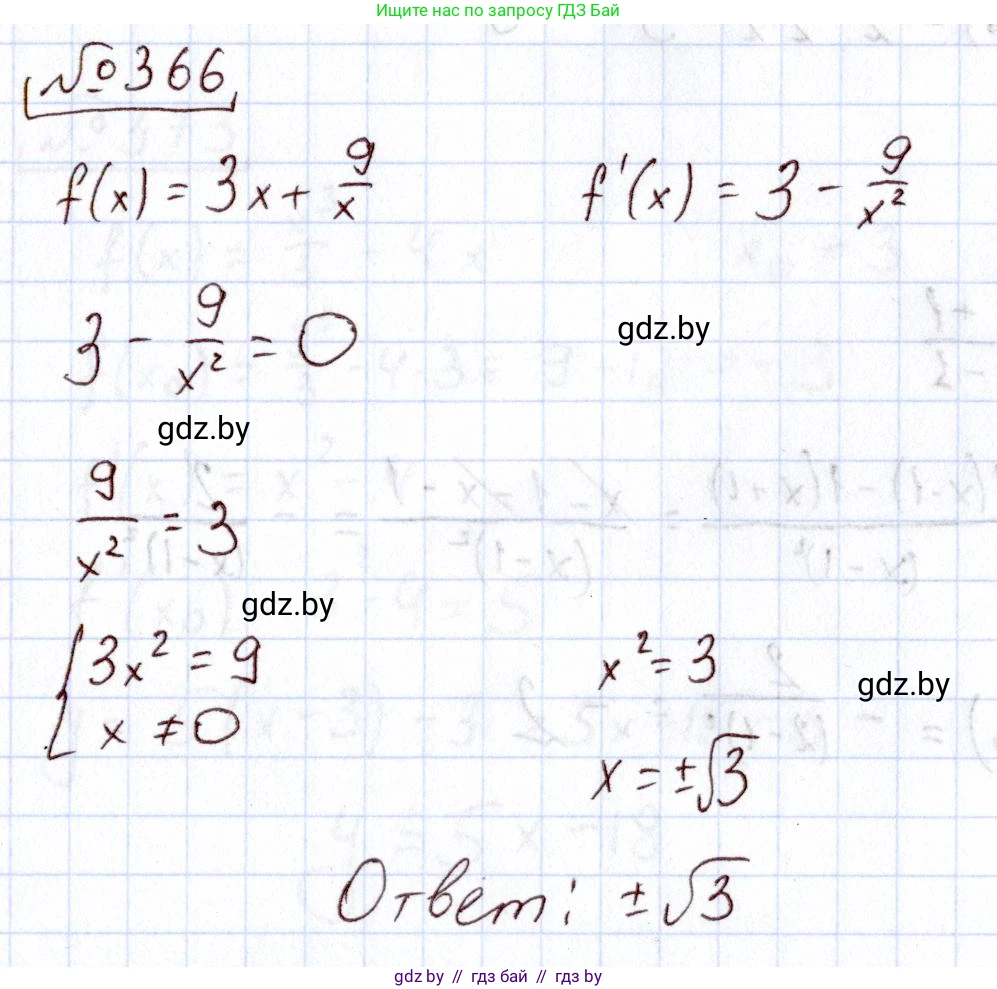 Ищите нас по запросу ГДЗ Бай
№366
f(x) = 3x + 9/x
f'(x) = 3 - 9/x²
3 - 9/x² = 0
gdz.by
gdz.by
9/x² = 3
gdz.by
{3x² = 9
x ≠ 0
x² = 3
gdz.by
x = ±√3
Ответ: ±√3
gdz.by // гдз бай // гдз by